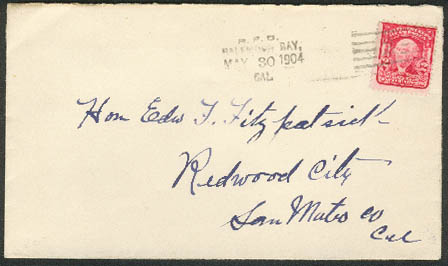 BAY,
MAY 30 1904
CAL.
Hon Edw F. Fitzpatrick
Redwood City
San Mateo Co
Cal